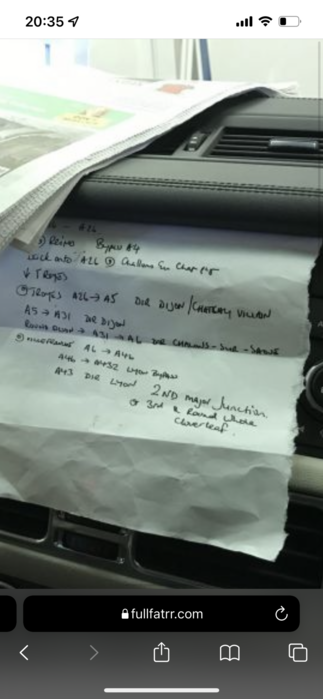 20:35
- A26
Reims Bypass A4
back onto A26 Chalons
↓ TROYES
TROYES A26 → A5 DIR DIJON / CHATEAU VILLAIN
A5 → A31 DIR DIJON
A31 → A6 DIR CHALONS - SUR - SAONE
A6 → A46
A46 → A432 LYON BYPASS
A43 DIR LYON 2ND major Junction
or 3rd & Round whole
Cloverleaf.
fullfatrr.com